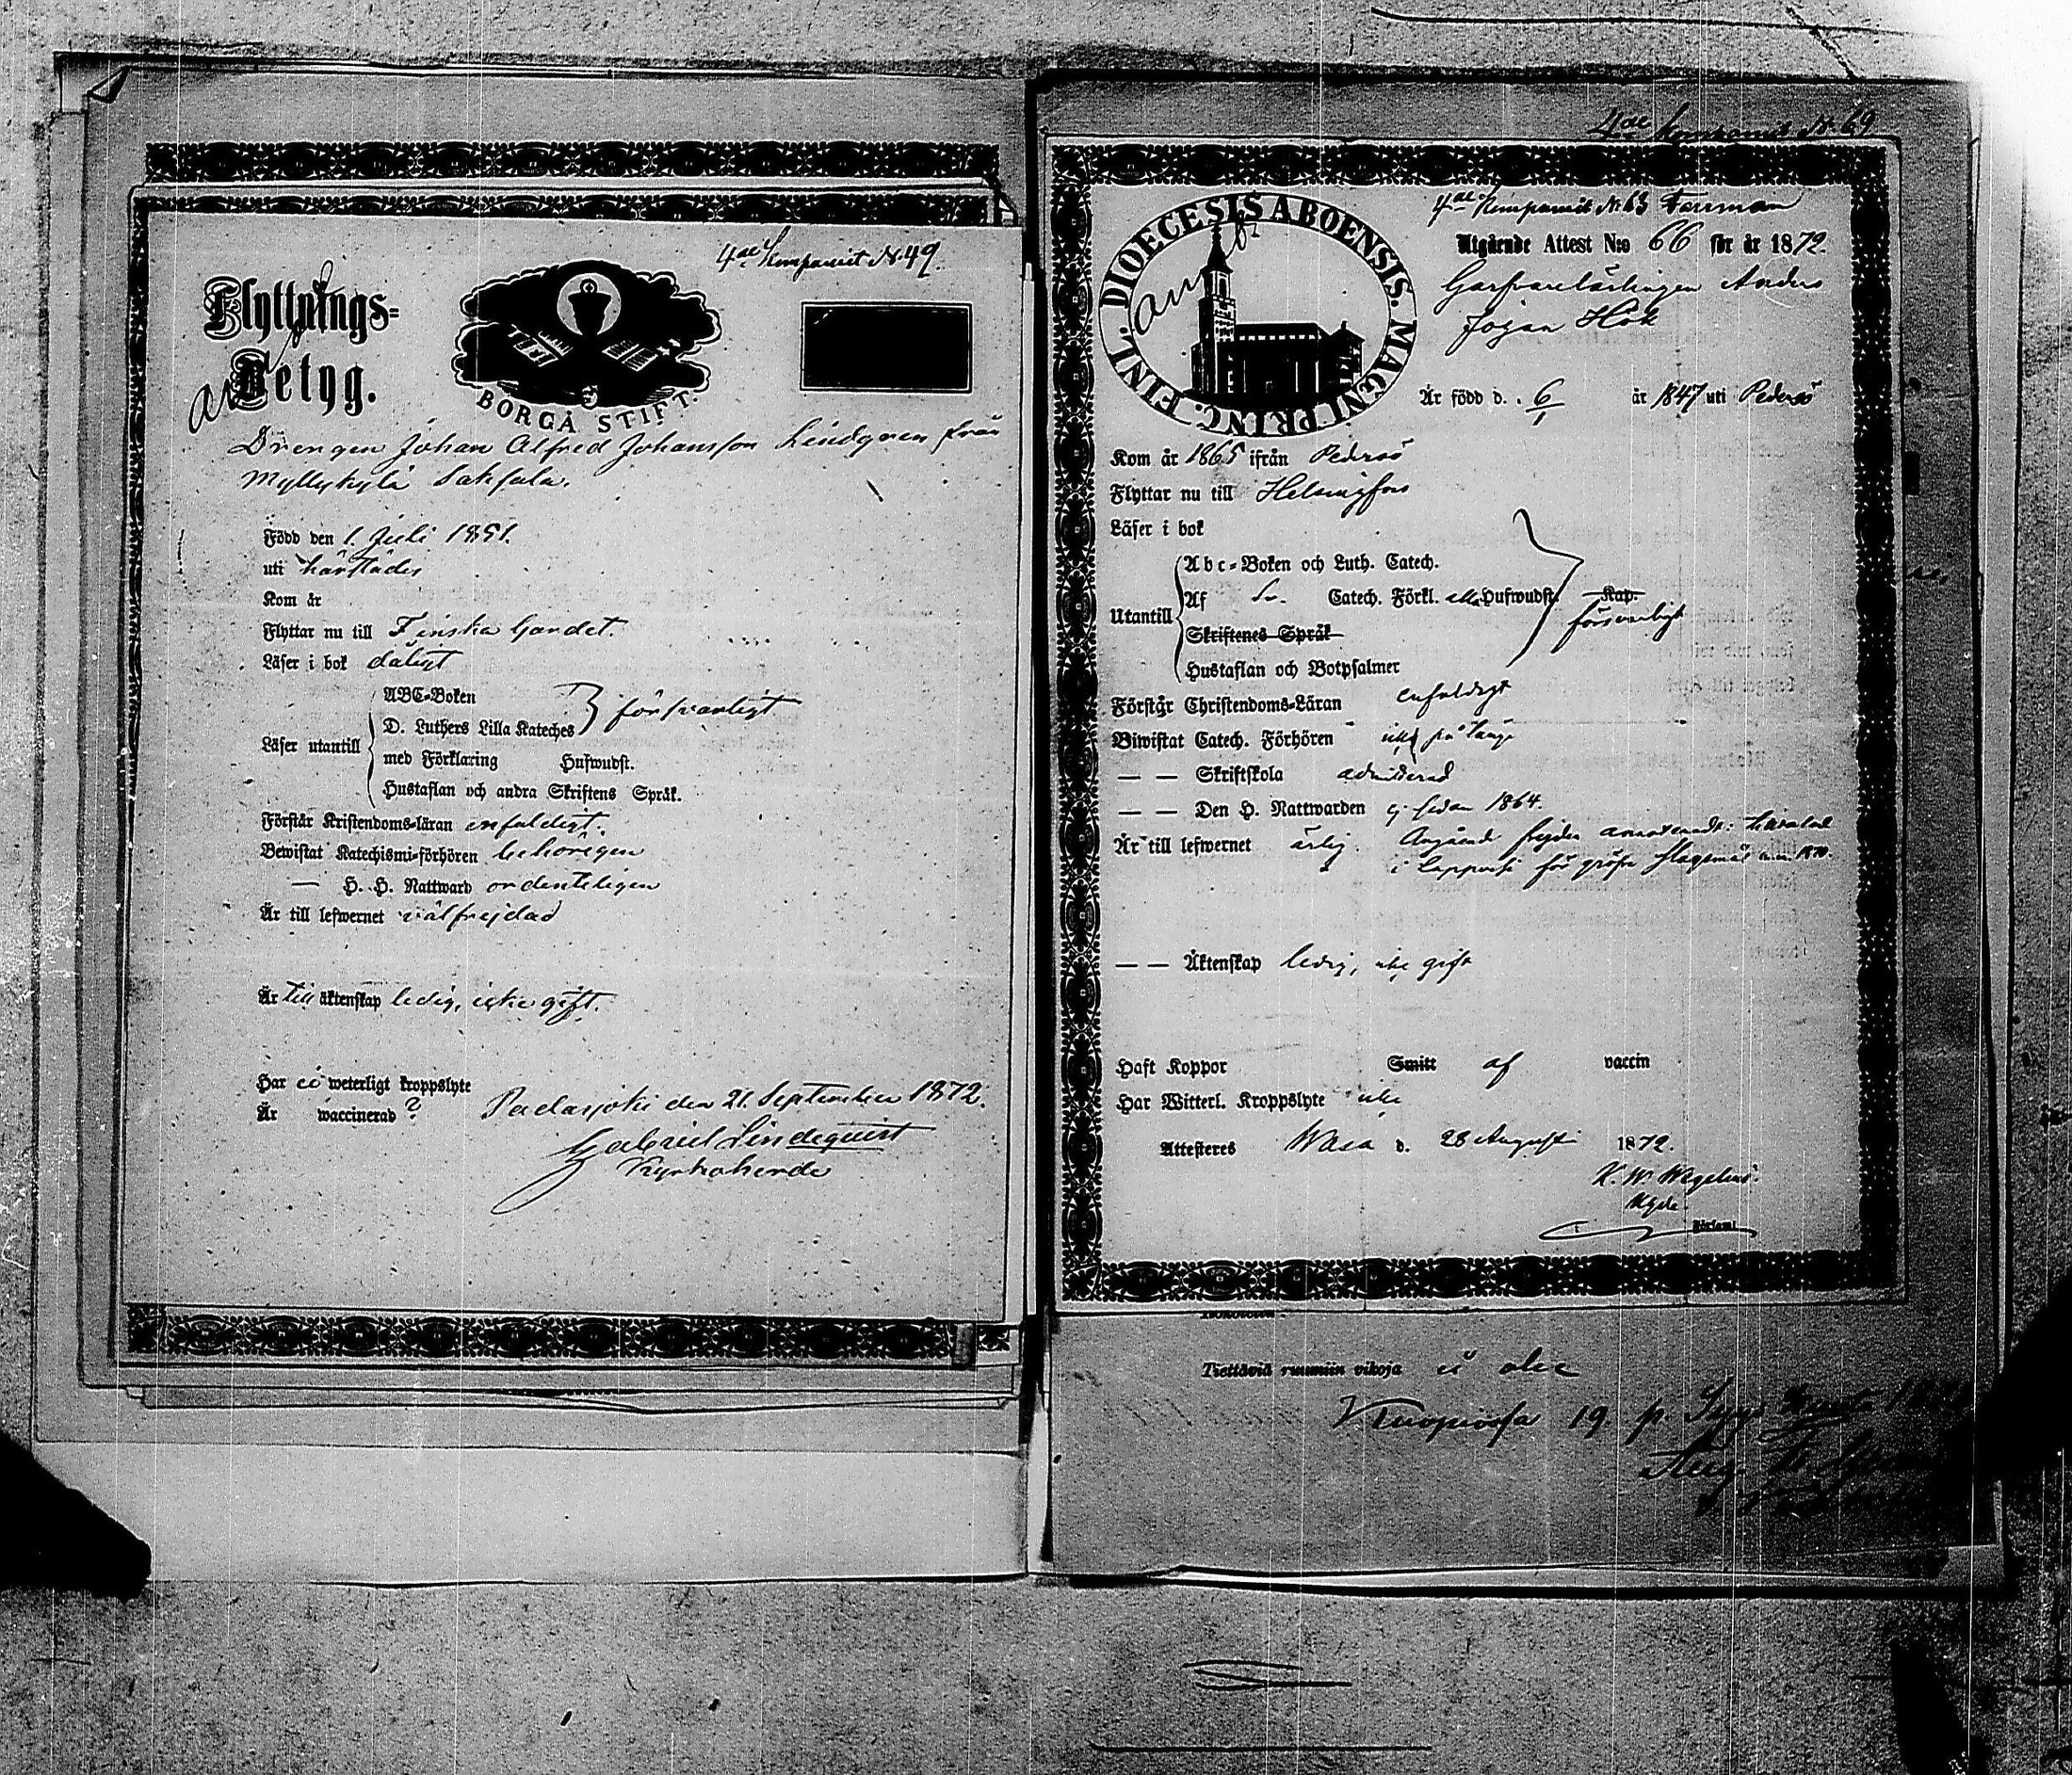 4de Kompaniet N. 49.
Flyttnings-
Betyg.
BORGÅ STIFT.
Drengen Johan Alfred Johansson Lindgren från
Myllykylä Saksala.
Född den 1. Juli 1851.
uti härstädes
Kom år
Flyttar nu till Finska Gardet.
Läser i bok dåligt
Läser utantill
ABC-Boken
D. Luthers Lilla Kateches
med Förklaring Hufwudst.
Hustaflan och andra Skriftens Språk.
försvarligt
Förstår Kristendoms-läran enfaldigt.
Bewistat Katechismi-förhören behörigen
— H. H. Nattward ordenteligen
Är till lefwernet välfrejdad
Är till äktenskap ledig, icke gift.
Har ei weterligt kroppslyte
Är waccinerad ?
Padasjoki den 21. September 1872.
Gabriel Lindequist
Kyrkoherde
4de Kompanit N. 69
DIOECESIS ABOENSIS. MAGNI PRINC. FINL.
4de Kompaniet N. 63
Utgående Attest N:o 66 för år 1872.
Garfvarelärlingen Anders
Johan Hök
Är född d. 6/1 år 1847 uti Pedersö
Kom år 1865 ifrån Pedersö
Flyttar nu till Helsingfors
Läser i bok
Utantill
Abc-Boken och Luth. Catech.
Af Sv. Catech. Förkl. alla Hufwudst. Kap.
Skriftenes Språk
Hustaflan och Botpsalmer
försvarligt
Förstår Christendoms-Läran enfaldigt
Biwistat Catech. Förhören icke på länge
— — Skriftskola admitterad
— — Den H. Nattwarden ej sedan 1864.
Är till lefwernet ärlig. Angående frejden
i för gröfre slagsmål
— — Äktenskap ledig, icke gift
Haft Koppor Smitt af vaccin
Har Witterl. Kroppslyte icke
Attesteres Wasa d. 28 Augusti 1872.
K. W. Wegelius.
Församl.
Tiettäviä ruumiin vikoja ei ole
Kuopiossa 19 p.